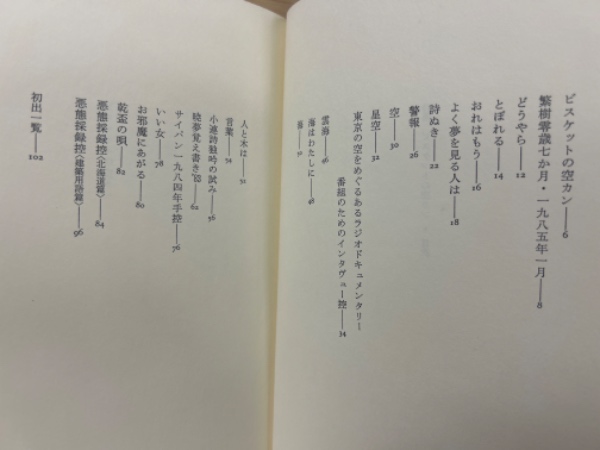 ビスケットの空カン——6
繁樹零歳七か月・一九八五年一月——8
どうやら——12
とぼれる——14
おれはもう——16
よく夢を見る人は——18
詩ぬき——22
警報——26
空——30
星空——32
東京の空をめぐるあるラジオドキュメンタリー
番組のためのインタヴュー控——34
雲海——46
海はわたしに——48
海——50
人と木は——52
言葉——54
小連詩独吟の試み——56
暁夢覚え書き
サイパン一九八四年手控——76
いい女——78
お邪魔にあがる——80
乾盃の唄——82
悪態採録控〈北海道篇〉——84
悪態採録控〈建築用語篇〉——96
初出一覧——102